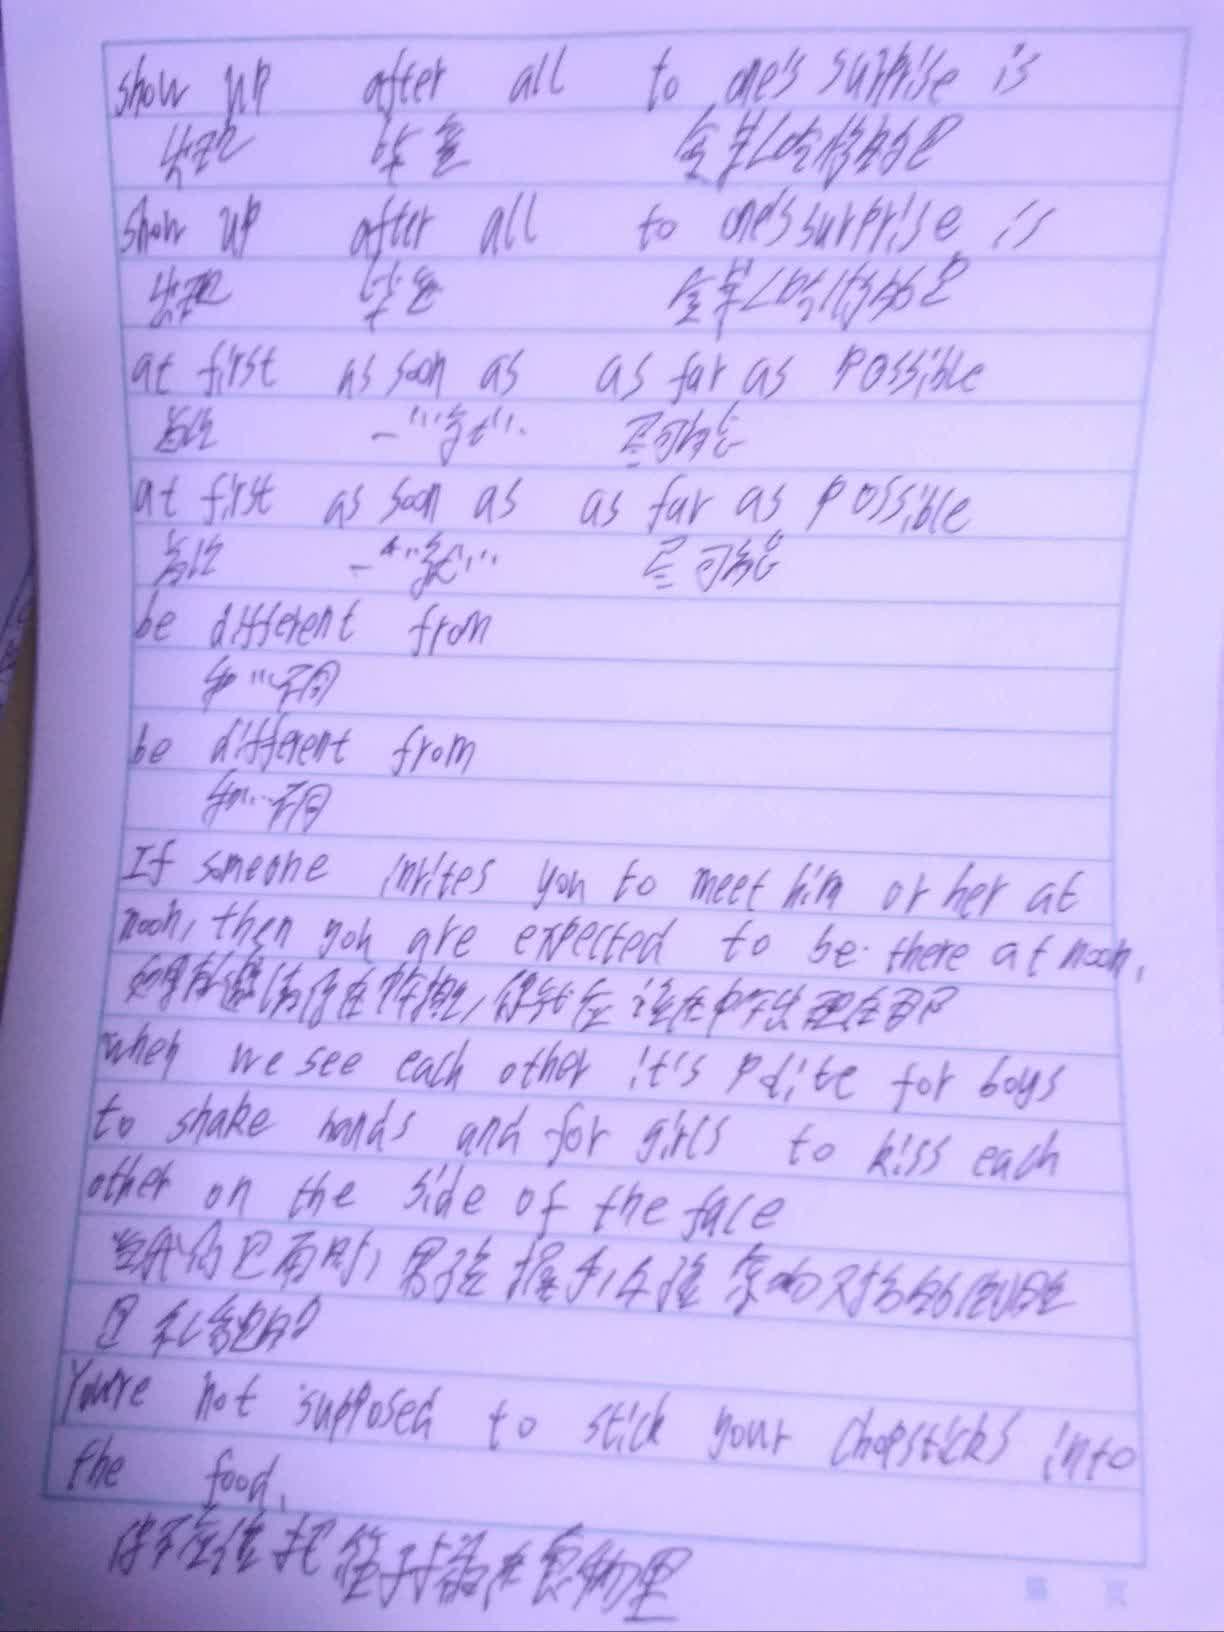 show up after all to one's surprise is
出现 毕竟 令某人吃惊的是
show up after all to one's surprise is
出现 毕竟 令某人吃惊的是
at first as soon as as far as possible
首次 一…就… 尽可能
at first as soon as as far as possible
首次 一…就… 尽可能
be different from
和…不同
be different from
和…不同
If someone invites you to meet him or her at
noon, then you are expected to be there at noon.
如果有人邀请你在中午, 你就应该在中午出现在
when we see each other it's polite for boys
to shake hands and for girls to kiss each
other on the side of the face
当我们见面时, 男孩握手, 女孩亲吻对方的
是礼貌的
You're not supposed to stick your chopsticks into
the food.
你不应该把筷子插在食物里